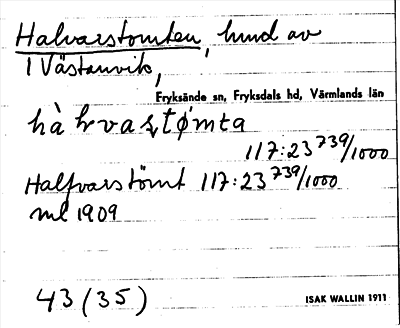 Halvarstomten, hmd av
1 Västanvik,
Fryksände sn, Fryksdals hd, Värmlands län
hàlvaștømta
117:23 739/1000
Halfvarstömt 117:23 739/1000
ml 1909
43 (35)
ISAK WALLIN 1911